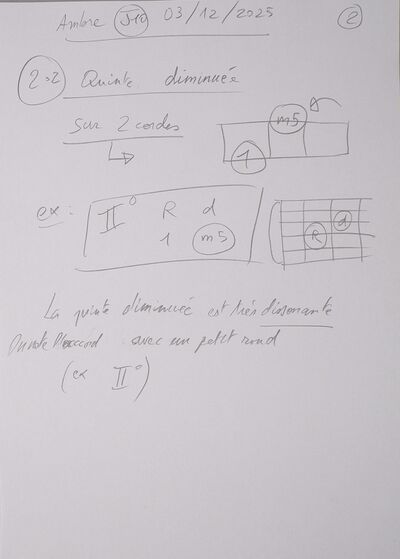 Ambre J10 03/12/2025 2
2=2 Quinte diminuée
sur 2 cordes
m5
1
ex : II° R d
1 m5
d
R
La quinte diminuée est très dissonante
On note l'accord avec un petit rond
(ex II°)